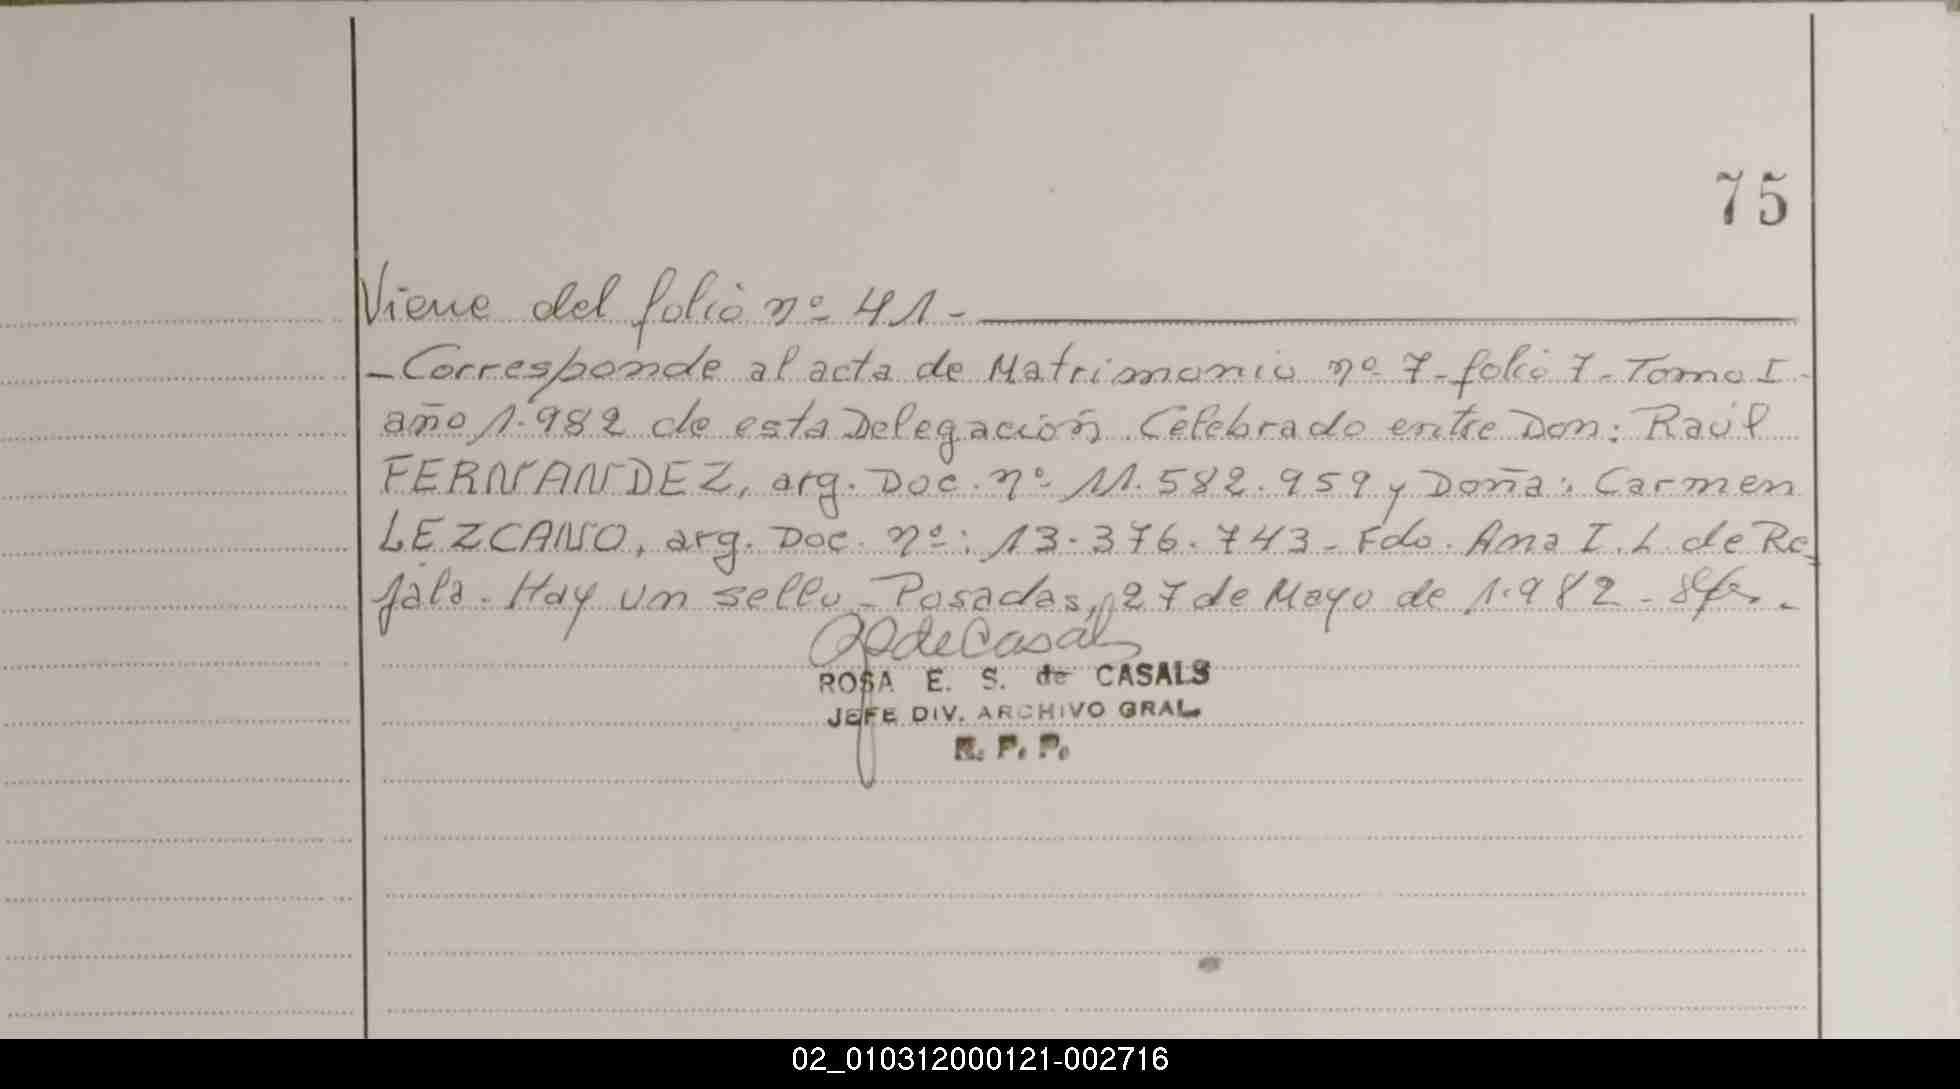 75
Viene del folio nº 41-
- Corresponde al acta de Matrimonio nº 7- folio 7- Tomo I-
año 1.982 de esta Delegación. Celebrado entre Don: Raúl
FERNANDEZ, arg. Doc. nº 11.582.959 y Doña: Carmen
LEZCANO, arg. Doc. nº: 13.376.743- Fdo. Ana I. L. de Re-
jala. Hay un sello- Posadas, 27 de Mayo de 1.982-
de Casals
ROSA E. S. de CASALS
JEFE DIV. ARCHIVO GRAL.
R. P. P.
02_010312000121-002716